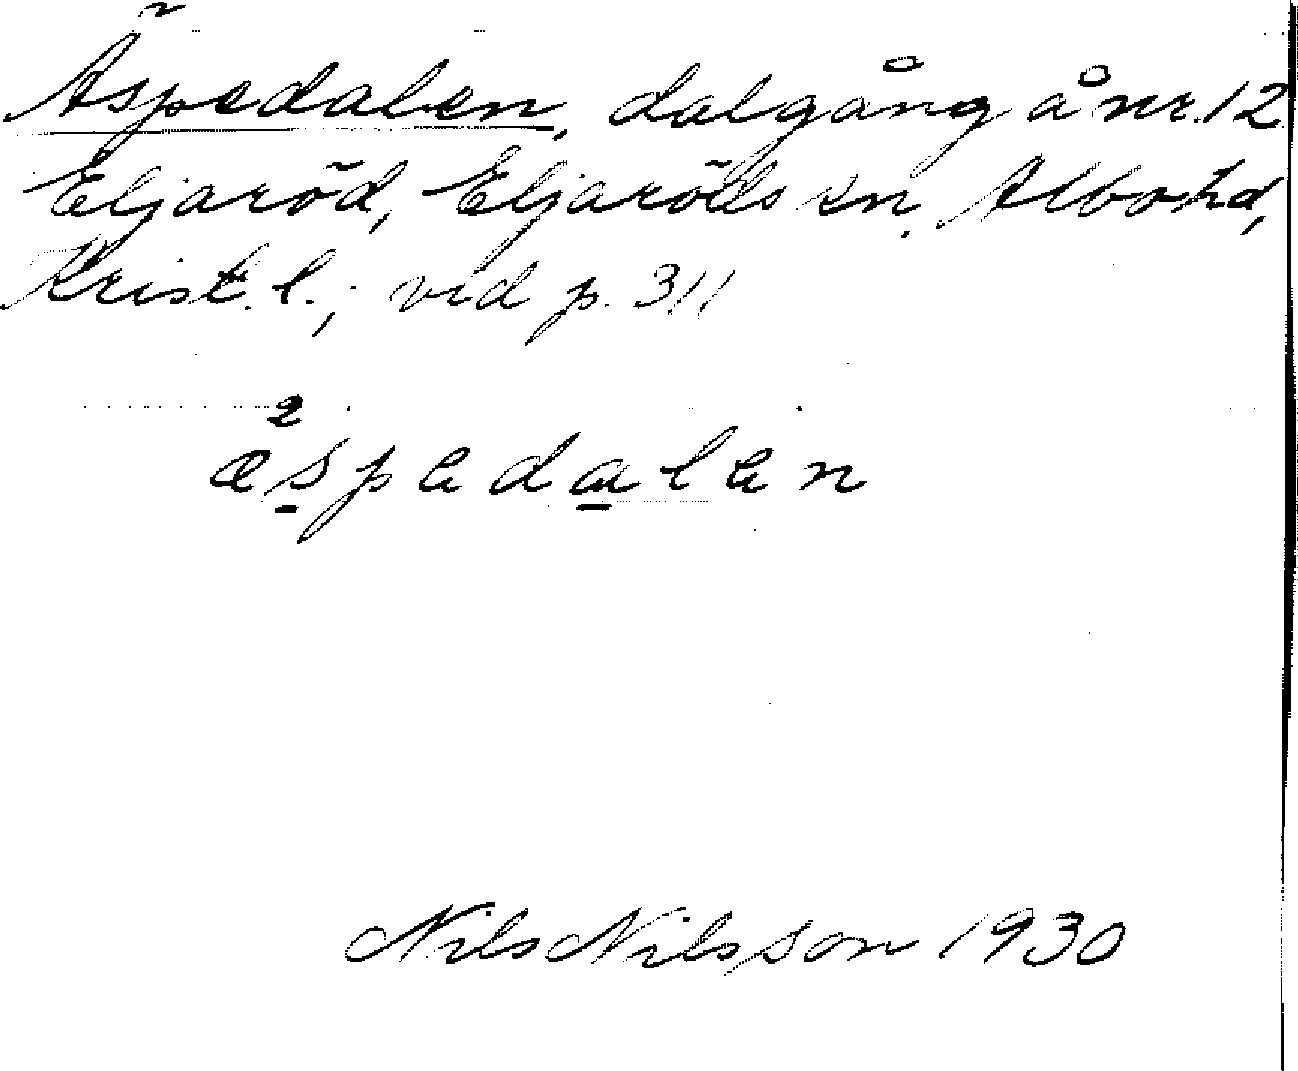 Äspedalen, dalgång å nr. 12
Eljaröd, Eljaröds sn. Albo hd,
Krist. l.; vid p. 311
æ²spedalen
Nils Nilsson 1930